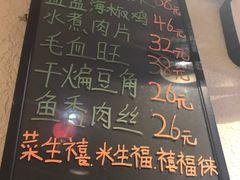 盆盆海椒鸡 36元
水煮肉片 46元
毛血旺 32元
干煸豆角 38元
鱼香肉丝 26元
26元
菜生禧·米生福·禧福徕